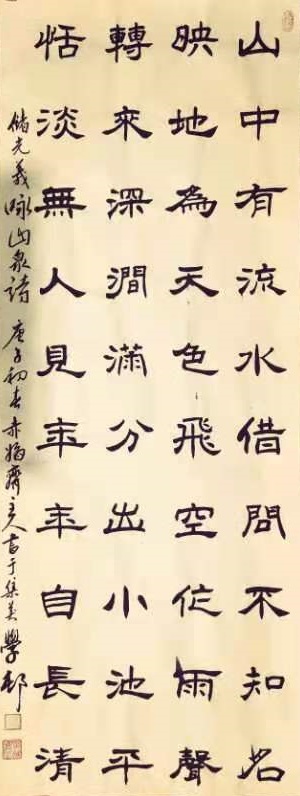 山中有流水借問不知名
映地為天色飛空作雨聲
轉來深澗滿分出小池平
恬淡無人見年年自長清
儲光羲咏山泉詩 庚子初春赤齋主人書于集美學邨